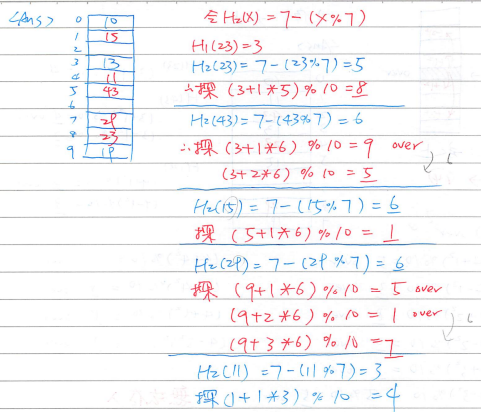 <Ans>
0 10
1 15
2
3 13
4 11
5 43
6
7 29
8 23
9 19
令H2(X) = 7-(X%7)
H1(23)=3
H2(23) = 7-(23%7)=5
∴探 (3+1*5)%10=8
H2(43)=7-(43%7)=6
∴探 (3+1*6)%10=9 over
(3+2*6)%10=5
H2(15)=7-(15%7)=6
探 (5+1*6)%10=1
H2(29)=7-(29%7)=6
探 (9+1*6)%10=5 over
(9+2*6)%10=1 over
(9+3*6)%10=7
H2(11)=7-(11%7)=3
探(1+1*3)%10=4